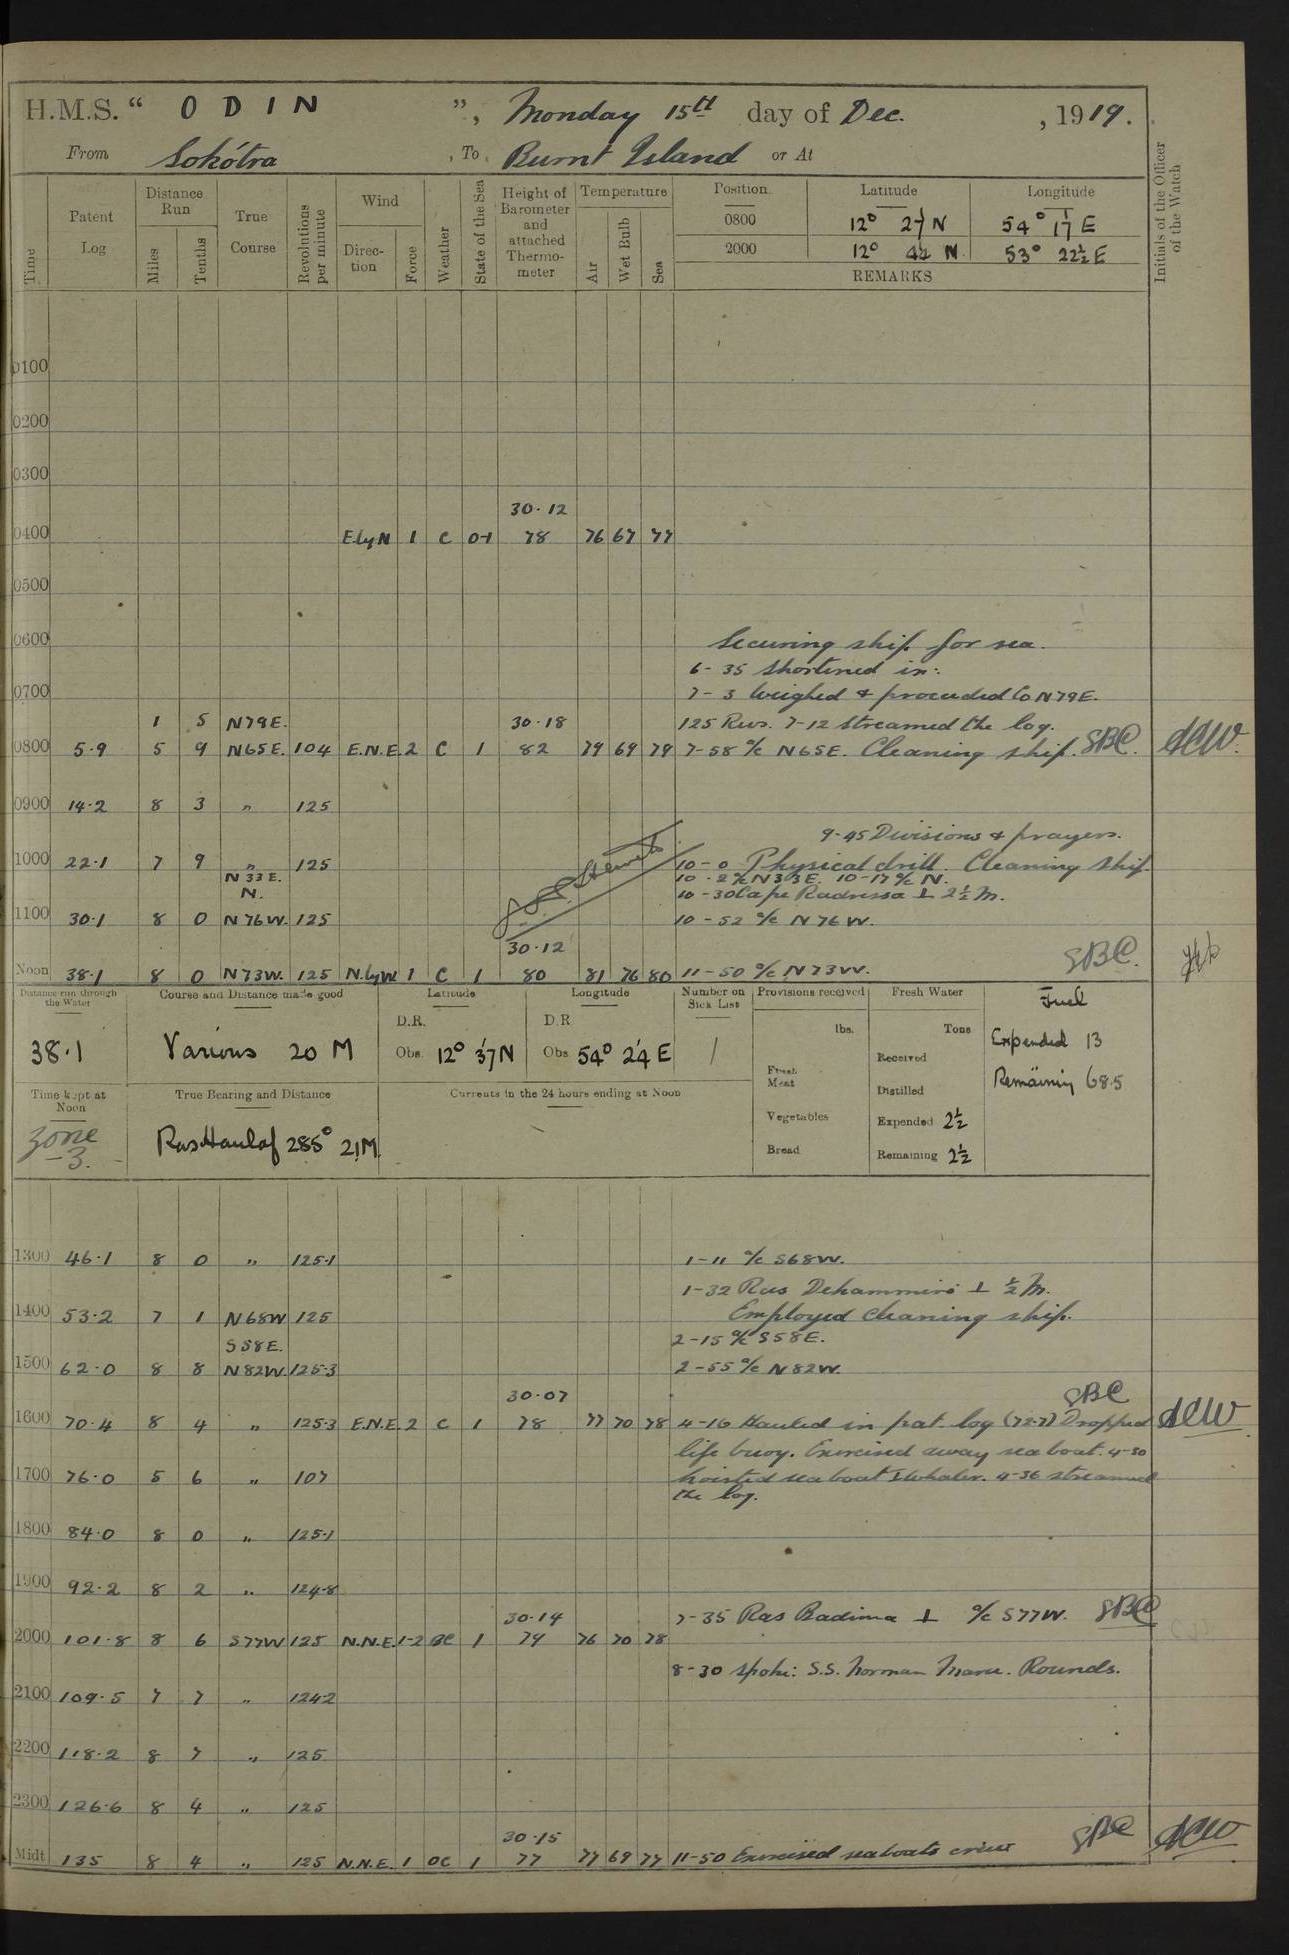 H.M.S. “ ODIN ”, Monday 15th day of Dec. , 1919.
From Sokótra , To Burnt Island or At
Time
Patent Log
Distance Run
Miles
Tenths
True Course
Revolutions per minute
Wind
Direction
Force
Weather
State of the Sea
Height of Barometer and attached Thermometer
Temperature
Air
Wet Bulb
Sea
Position Latitude Longitude
0800 12° 27' N 54° 17' E
2000 12° 42 N 53° 22½ E
REMARKS
Initials of the Officer of the Watch
0100
0200
0300
30·12
0400 E.byN 1 C 0-1 78 76 67 77
0500
0600 Securing ship for sea.
6-35 Shortened in.
0700 7-3 Weighed & proceeded Co N79E.
1 5 N79E. 30·18 125 Revs. 7-12 Streamed the log.
0800 5·9 5 9 N65E. 104 E.N.E. 2 C 1 82 79 69 79 7-58 a/c N65E. Cleaning ship. SBC. ACW.
0900 14·2 8 3 „ 125
9-45 Divisions & prayers.
1000 22·1 7 9 „ 125 10-0 Physical drill. Cleaning ship.
N33E. 10·2 a/c N33E. 10-17 a/c N.
N. 10-30 Cape Radressa ⊥ 2½ M.
1100 30·1 8 0 N76W. 125 10-52 a/c N76W.
30·12 SBC.
Noon 38·1 8 0 N73W. 125 N.byW 1 C 1 80 81 76 80 11-50 a/c N73W.
Distance run through the Water
38·1
Course and Distance made good
Various 20 M
Latitude
D.R.
Obs. 12° 37' N
Longitude
D.R
Obs. 54° 24' E
Number on Sick List
1
Provisions received
lbs.
Fresh Meat
Vegetables
Bread
Fresh Water
Tons
Received
Distilled
Expended 2½
Remaining 2½
Fuel
Expended 13
Remaining 685
Time kept at Noon
Zone -3.
True Bearing and Distance
Ras Haulaf 285° 21M.
Currents in the 24 hours ending at Noon
1300 46·1 8 0 „ 125·1 1-11 a/c S68W.
1-32 Ras Dehammeri ⊥ ½ M.
1400 53·2 7 1 N68W 125 Employed cleaning ship.
S58E. 2-15 a/c S58E.
1500 62·0 8 8 N82W. 125·3 2-55 a/c N82W.
30·07 SBC
1600 70·4 8 4 „ 125·3 E.N.E. 2 C 1 78 77 70 78 4-16 Hauled in pat. log (72·7) Dropped ACW.
life buoy. Exercised away sea boat. 4-30
1700 76·0 5 6 „ 107 hoisted sea boat & whaler. 4-36 streamed
the log.
1800 84·0 8 0 „ 125·1
1900 92·2 8 2 „ 124·8
30·14 7-35 Ras Badima ⊥ a/c S77W. SBC
2000 101·8 8 6 S77W 125 N.N.E. 1-2 BC 1 79 76 70 78
8-30 spoke: S.S. Norman Maru. Rounds.
2100 109·5 7 7 „ 124·2
2200 118·2 8 7 „ 125
2300 126·6 8 4 „ 125
30·15 SBC
Midt 135 8 4 „ 125 N.N.E. 1 OC 1 77 77 69 77 11-50 Exercised seaboats crew ACW